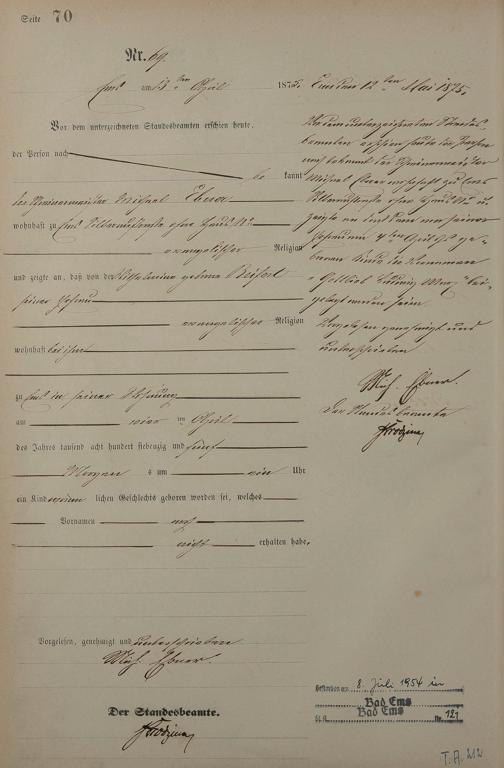 Seite 70
Nr. 69.
Ems am 13ten April 1875.
Vor dem unterzeichneten Standesbeamten erschien heute,
der Person nach
be kannt
der Schreinermeister Michael Ebner
wohnhaft zu Ems
ohne Haus No
evangelischer Religion
und zeigte an, daß von der Wilhelmine geborne
seiner Ehefrau
evangelischer Religion
wohnhaft bei ihm
zu Ems in seiner Wohnung
am vier ten April
des Jahres tausend acht hundert siebenzig und fünf
Morgens um ein Uhr
ein Kind männ lichen Geschlechts geboren worden sei, welches
Vornamen noch
nicht erhalten habe.
Vorgelesen, genehmigt und unterschrieben
Mich. Ebner.
Der Standesbeamte.
Ems am 12ten Mai 1875.
Vor dem unterzeichneten Standes-
beamten erschien heute der Person
nach bekannt der Schreinermeister
Michael Ebner wohnhaft zu Ems
ohne Haus No
zeigte an
seiner
Ehefrau am 4ten April
ge-
borenen Kinde die Vornamen
Gottlieb Ludwig
bei-
gelegt worden seien
Vorgelesen genehmigt und
unterschrieben
Mich. Ebner.
Der Standesbeamte
Gestorben am 8. Juli 1954 in
Bad Ems
St. A. Bad Ems Nr. 121
T.A. 212